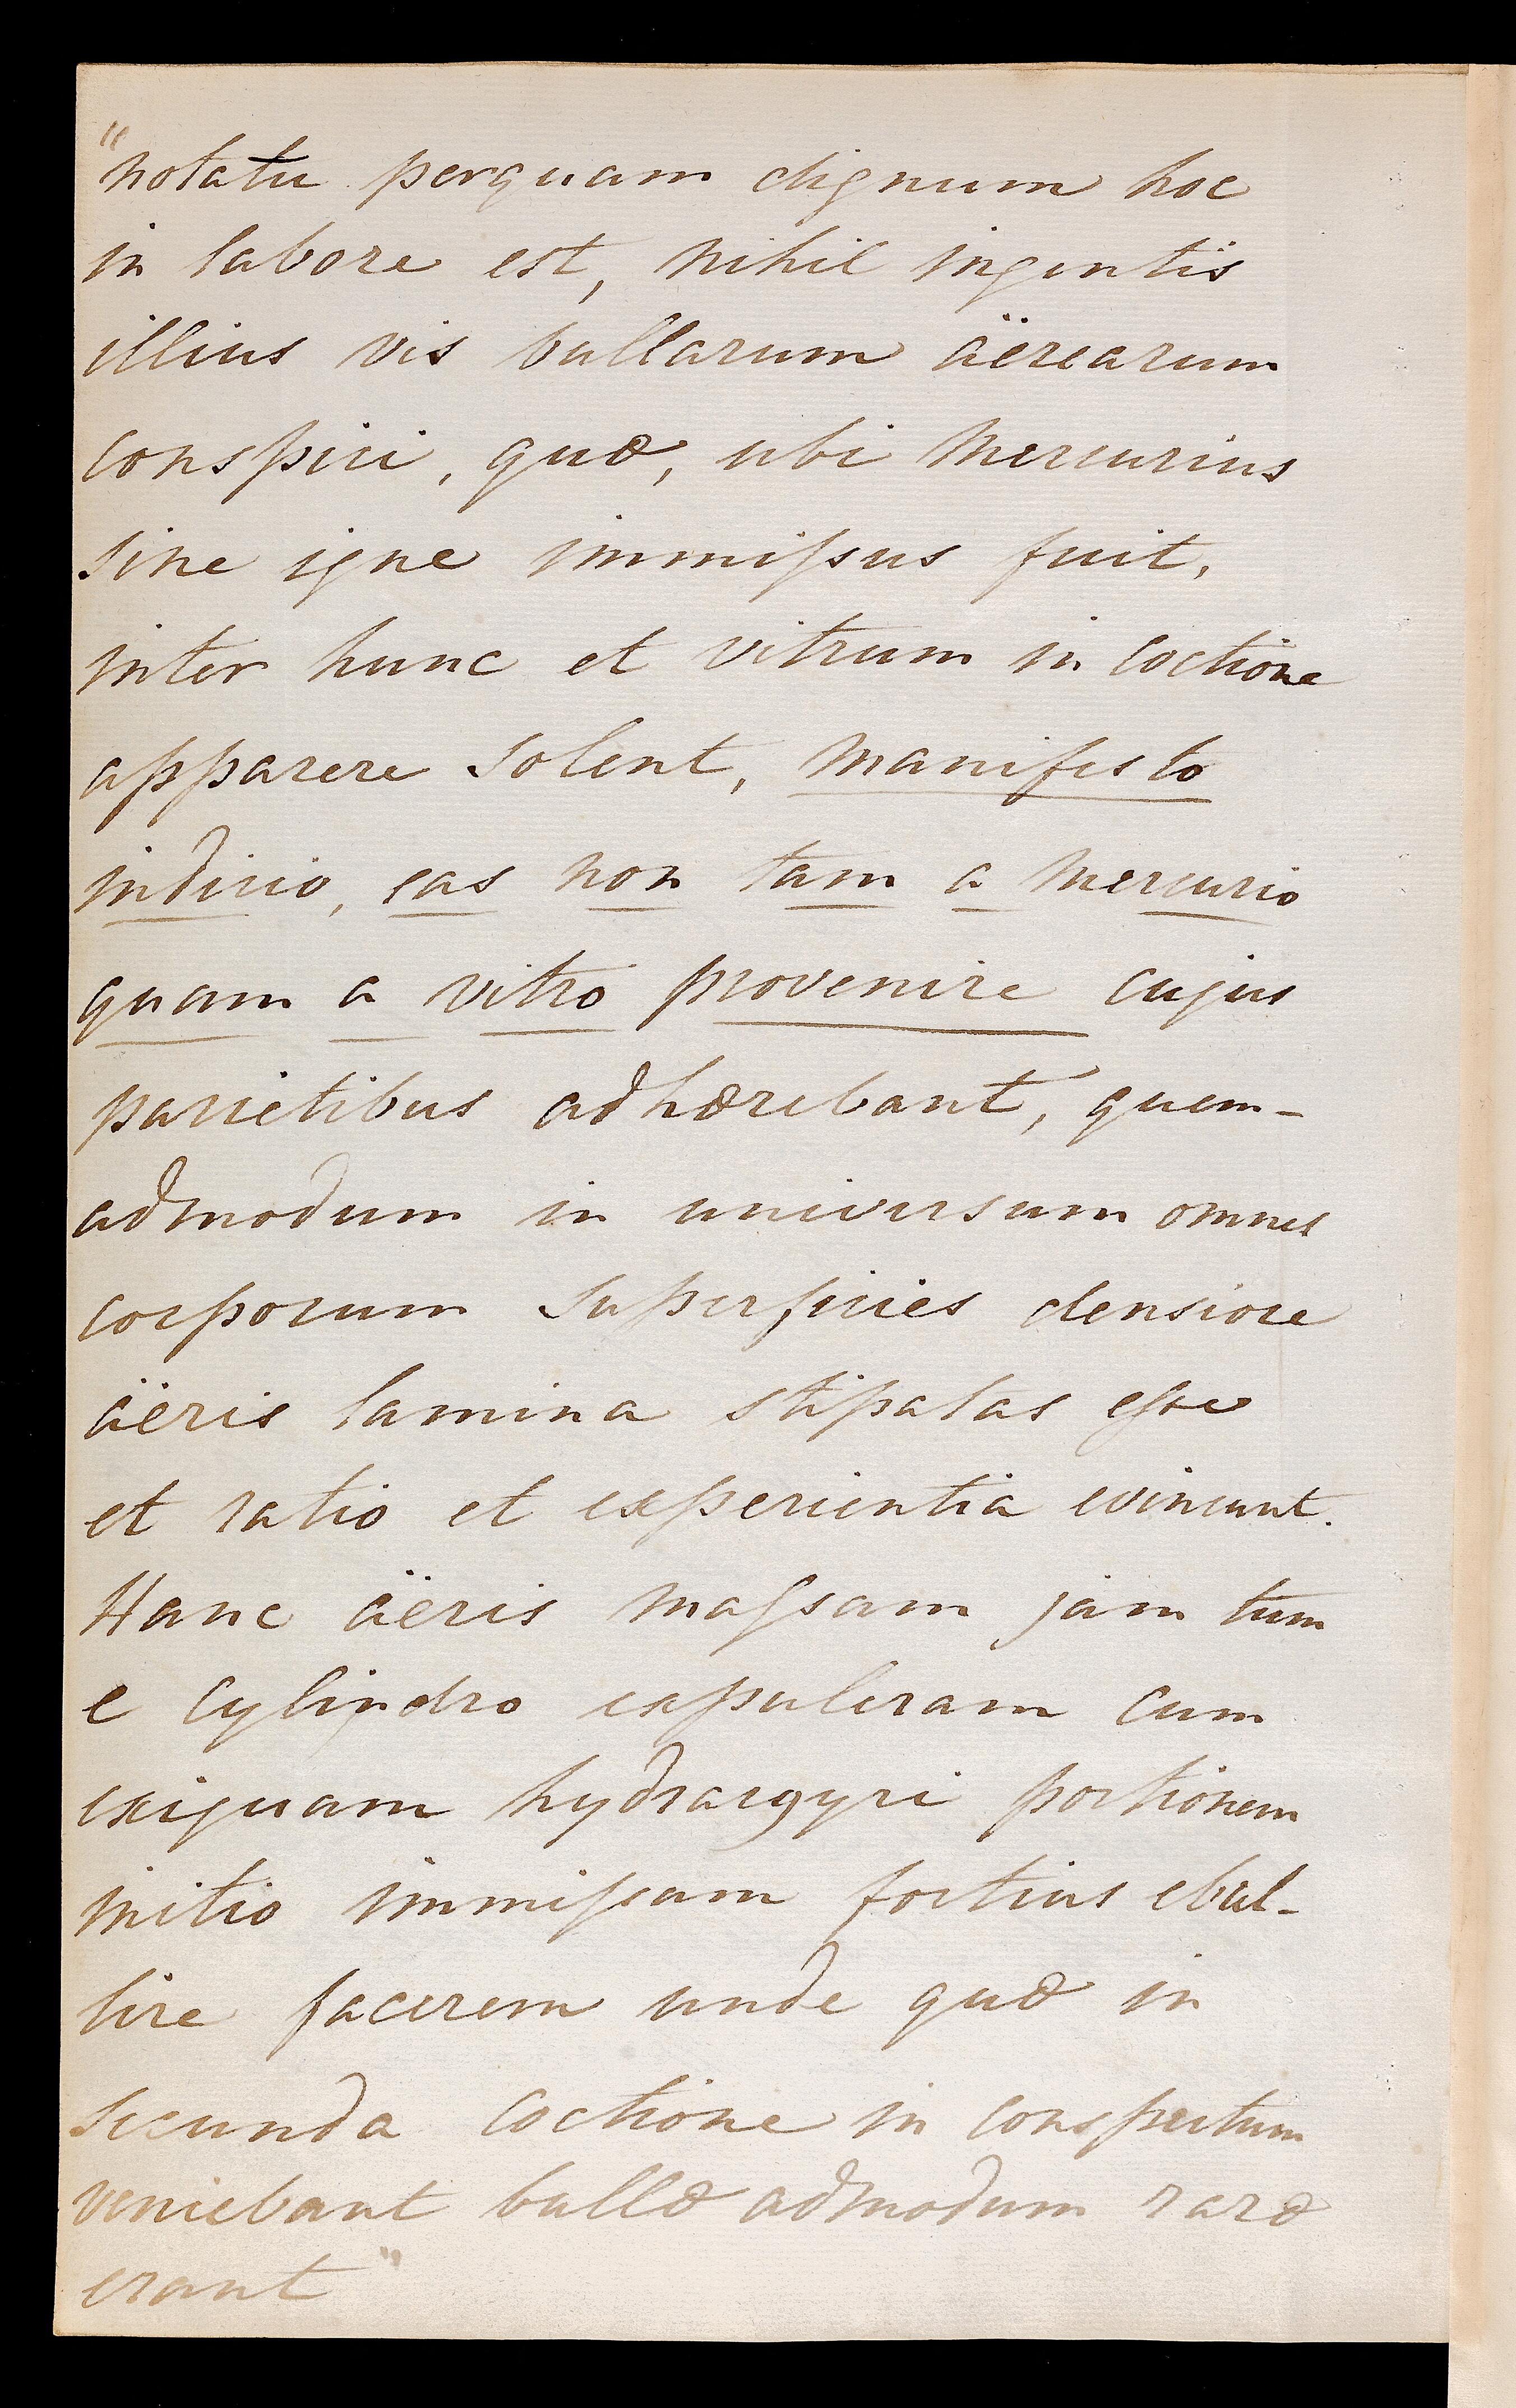 "notatu perquam dignum hoc
in labore est, nihil ingentis
illius vis bullarum äerearum
conspici, quæ, ubi Mercurius
sine igne immissus fuit,
inter hunc et vitrum in coctione
apparere solent, manifesto
indicio, eas non tam a mercurio
quam a vitro provenire cujus
parietibus adhærebant, quem-
admodum in universum omnes
corporum superficies densiore
äeris lamina stipatas esse
et ratio et experientia evincunt.
Hanc äeris massam jam tum
e cylindro expuleram cum
exiguam hydrargyri portionem
initio immissam fortius ebul-
lire facerem unde quæ in
secunda coctione in conspectum
veniebant bullæ admodum raræ
erant"